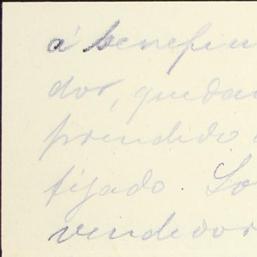 á benefici
dor, quedan
prendido
tijado. Lo
vendedor